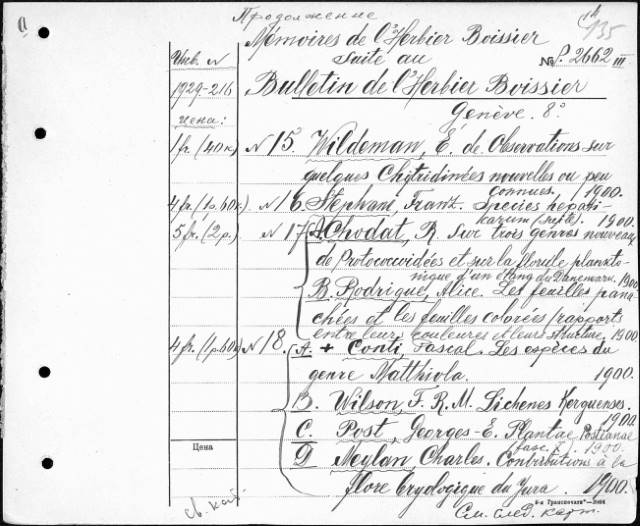 Продолжение
135
Mémoires de l'Herbier Boissier
suite au
Инв. N
№ P. 2662 III
1929-216
Bulletin de l'Herbier Boissier
Genève. 8°
Цена:
1 fr. (40 к) N 15. Wildeman, É. de. Observations sur
quelques Chytridinées nouvelles ou peu
connues, 1900.
4 fr. (1 р. 60 к) N 16. Stephani, Franz. Species hepati-
karum (suite). 1900.
5 fr. (2 р.) N 17. A. Chodat, R. Sur trois genres nouveaux
de Protococcoidées et sur la florule plankto-
nique d'un étang du Danemark. 1900
B. Rodrigue, Alice. Les feuilles pana-
chées et les feuilles colorées (rapport
entre leurs couleures et leur structure, 1900
4 fr. (1 р. 60 к) N 18. A. + Conti, Pascal. Les espèces du
genre Matthiola. 1900.
B. Wilson, F. R. M. Lichenes Kerguenses.
1900.
C. Post, Georges-E. Plantae Postianae
fasc. X. 1900.
Цена
D Meylan, Charles. Contributions à la
flore bryologique du Jura. 1900.
св. кат.
См. след. карт.